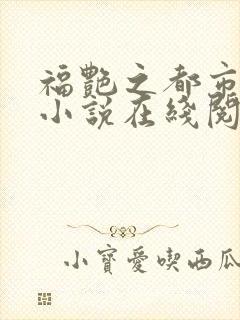 福艷之都市
小說在綫閱
小寶愛喫西瓜